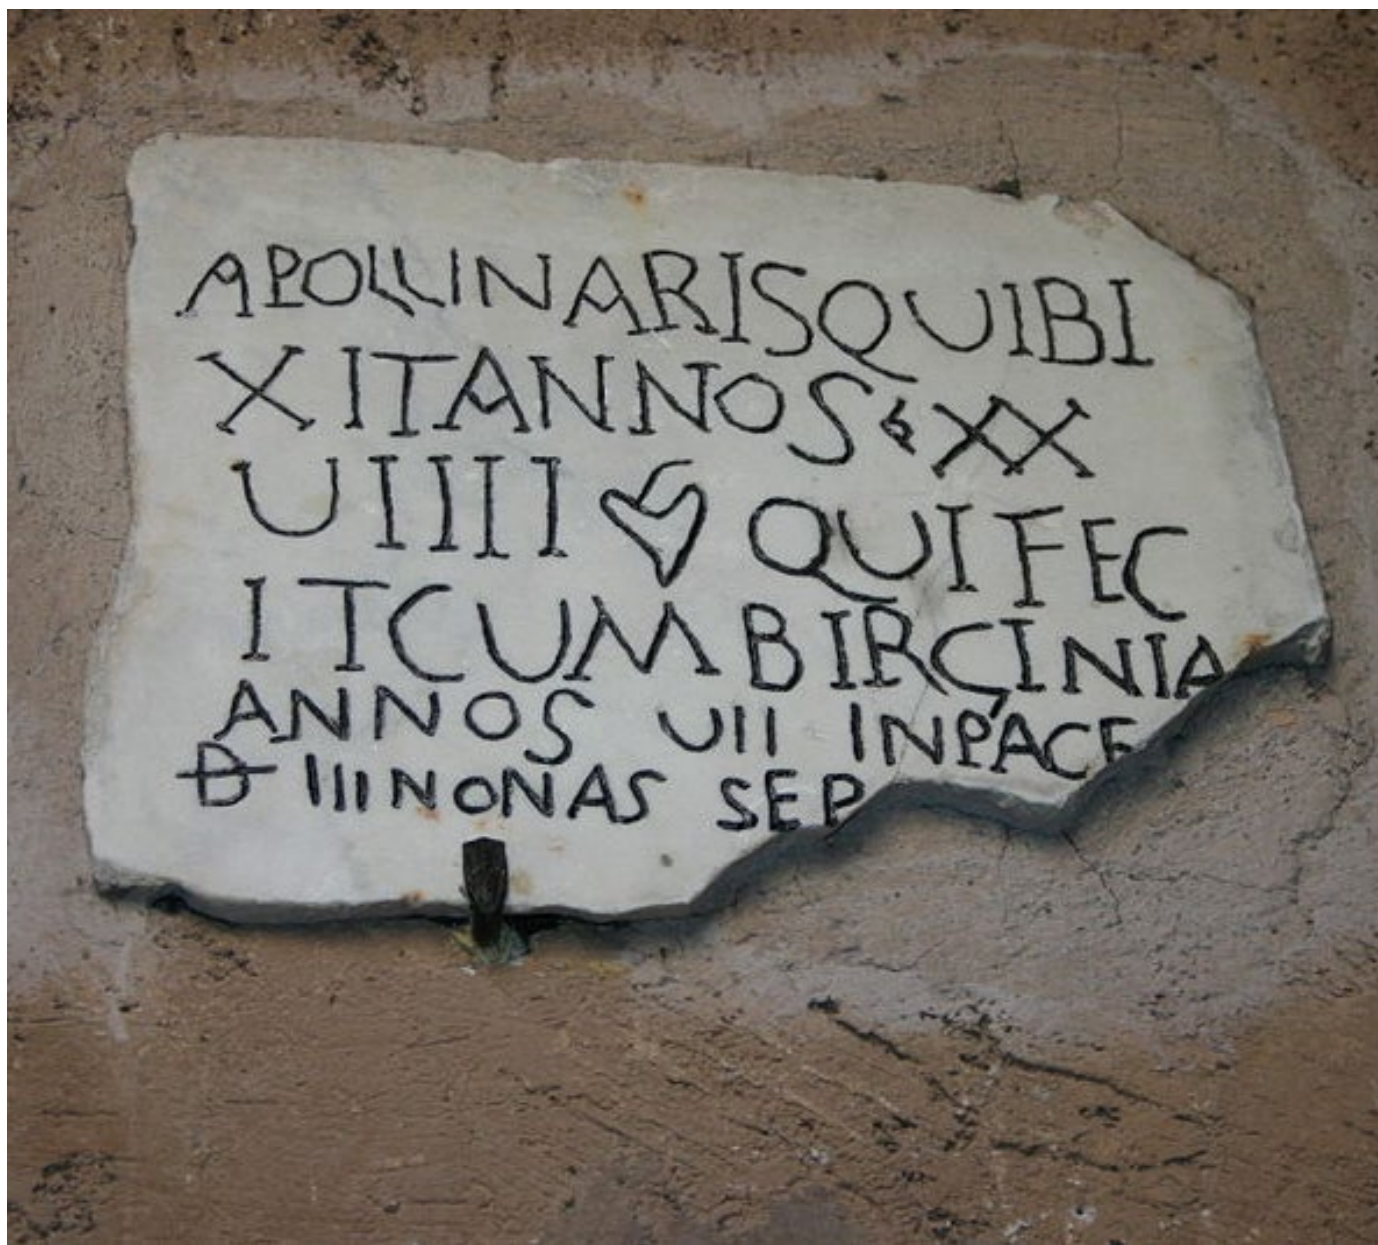 APOLLINARISQUIBI
XITANNOS XX
UIIII ❦ QUIFEC
ITCUMBIRGINIA
ANNOS UII INPACE
D IIINONAS SEP